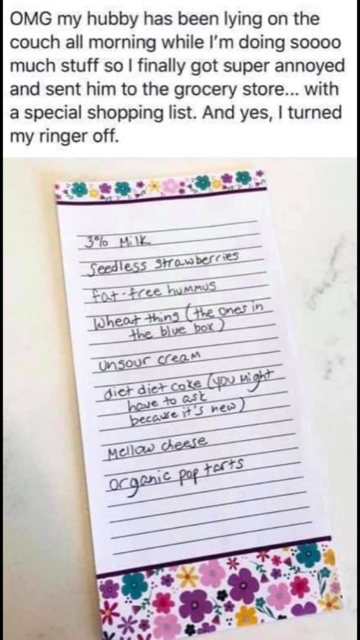 OMG my hubby has been lying on the
couch all morning while I'm doing soooo
much stuff so I finally got super annoyed
and sent him to the grocery store... with
a special shopping list. And yes, I turned
my ringer off.
3% Milk
Seedless strawberries
fat-free hummus
Wheat thing (the ones in
the blue box)
unsour cream
diet diet coke (you might
have to ask
because it's new)
Mellow cheese
organic pop tarts